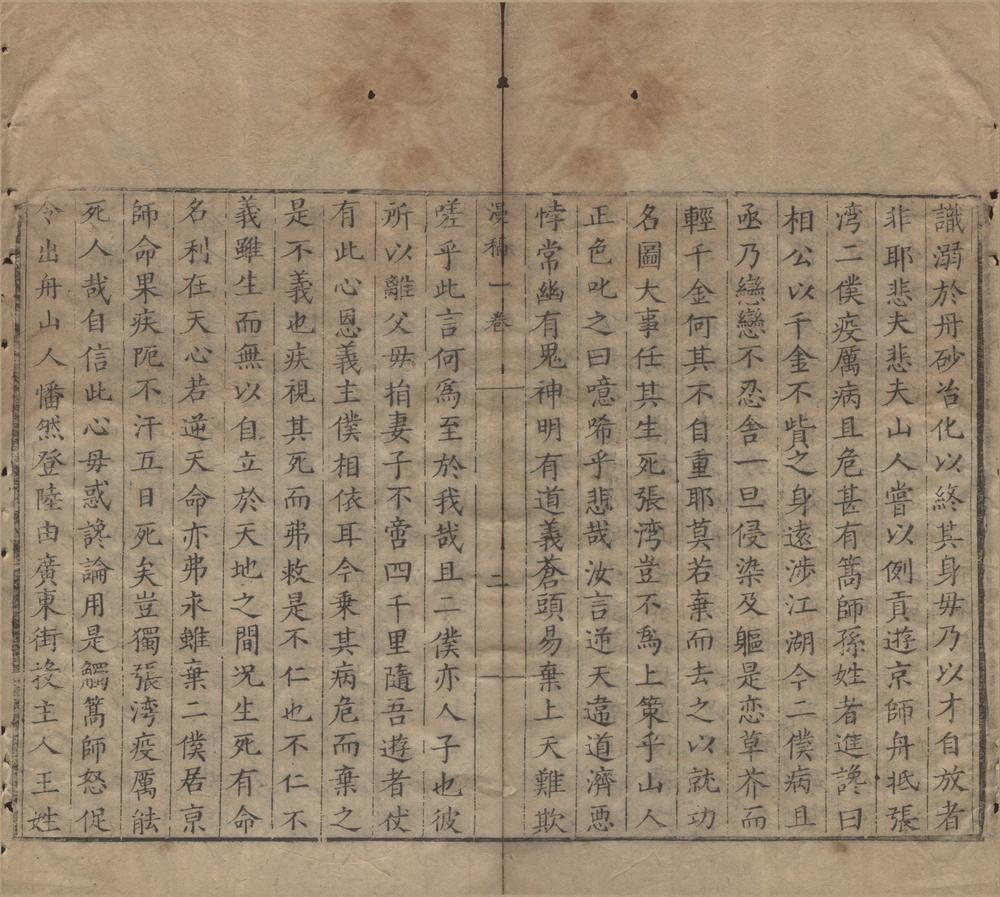 識溺於丹砂冶化以終其身毋乃以才自放者
非耶悲夫悲夫山人嘗以例貢遊京師舟抵張
湾二僕疫厲病且危甚有篙師孫姓者進讒曰
相公以千金不貲之身遠涉江湖今二僕病且
亟乃戀戀不忍舍一旦侵染及軀是恋草芥而
輕千金何其不自重耶莫若棄而去之以就功
名圖大事任其生死張湾豈不為上策乎山人
正色叱之曰噫唏乎悲哉汝言逆天違道濟悪
悖常幽有鬼神明有道義蒼頭易棄上天難欺
漫稿一卷 二
嗟乎此言何為至於我哉且二僕亦人子也彼
所以離父毋捐妻子不啻四千里隨吾遊者仗
有此心恩義主僕相依耳今乗其病危而棄之
是不義也疾視其死而弗救是不仁也不仁不
義雖生而無以自立於天地之間况生死有命
名利在天心若逆天命亦弗永雖棄二僕居京
師命果疾阨不汗五日死矣豈獨張湾疫厲能
死人哉自信此心毋惑讒論用是觸篙師怒促
令出舟山人憣然登陸由廣東街投主人王姓